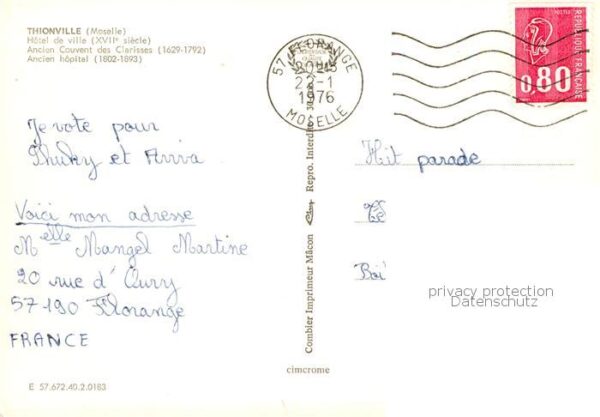 THIONVILLE (Moselle)
Hôtel de ville (XVIIe siècle)
Ancien Couvent des Clarisses (1629-1792)
Ancien hôpital (1802-1893)
57 FLORANGE
22-1
1976
MOSELLE
0,80
REPUBLIQUE FRANÇAISE
Je vote pour
et
Voici mon adresse
Melle Mangel Martine
20 rue d'
57190 Florange
FRANCE
Combier Imprimeur Mâcon
Repro. Interdite
Hit parade
privacy protection
Datenschutz
cimcrome
E 57.672.40.2.0183